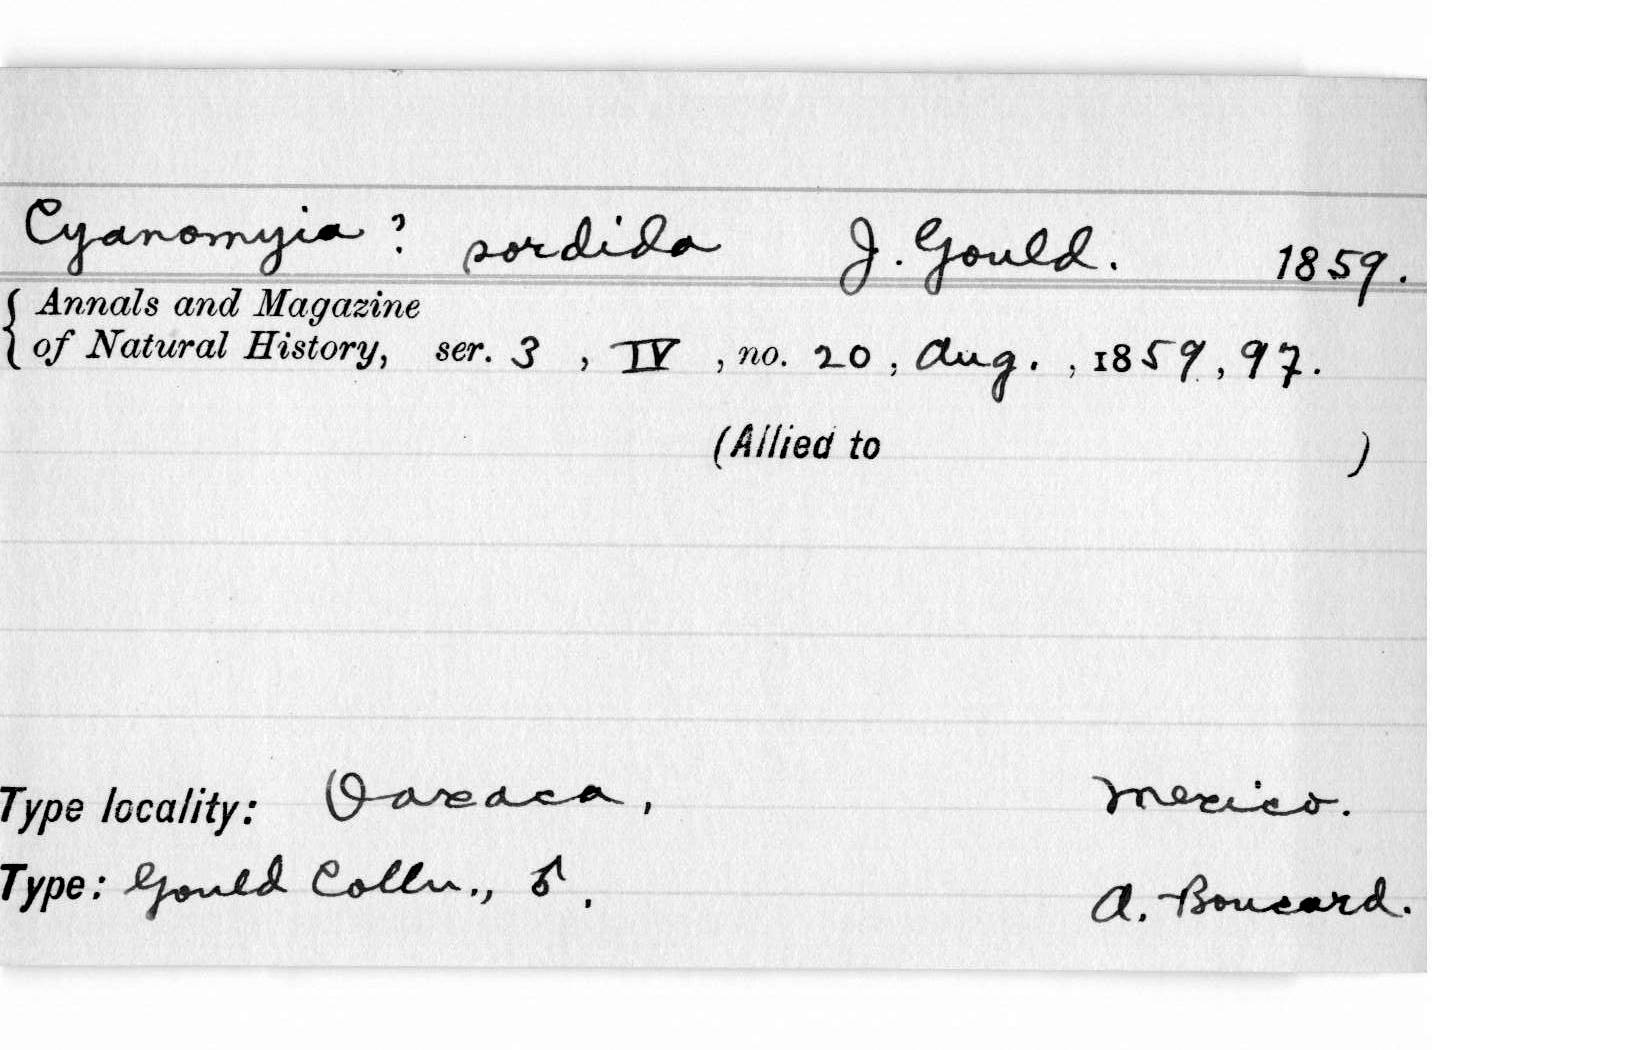 Cyanomyia ? sordida J. Gould. 1859.
{ Annals and Magazine
of Natural History, ser. 3 , IV , no. 20 , Aug. , 1859 , 97.
(Allied to )
Type locality: Oaxaca, Mexico.
Type: Gould Colln., ♂. A. Boucard.